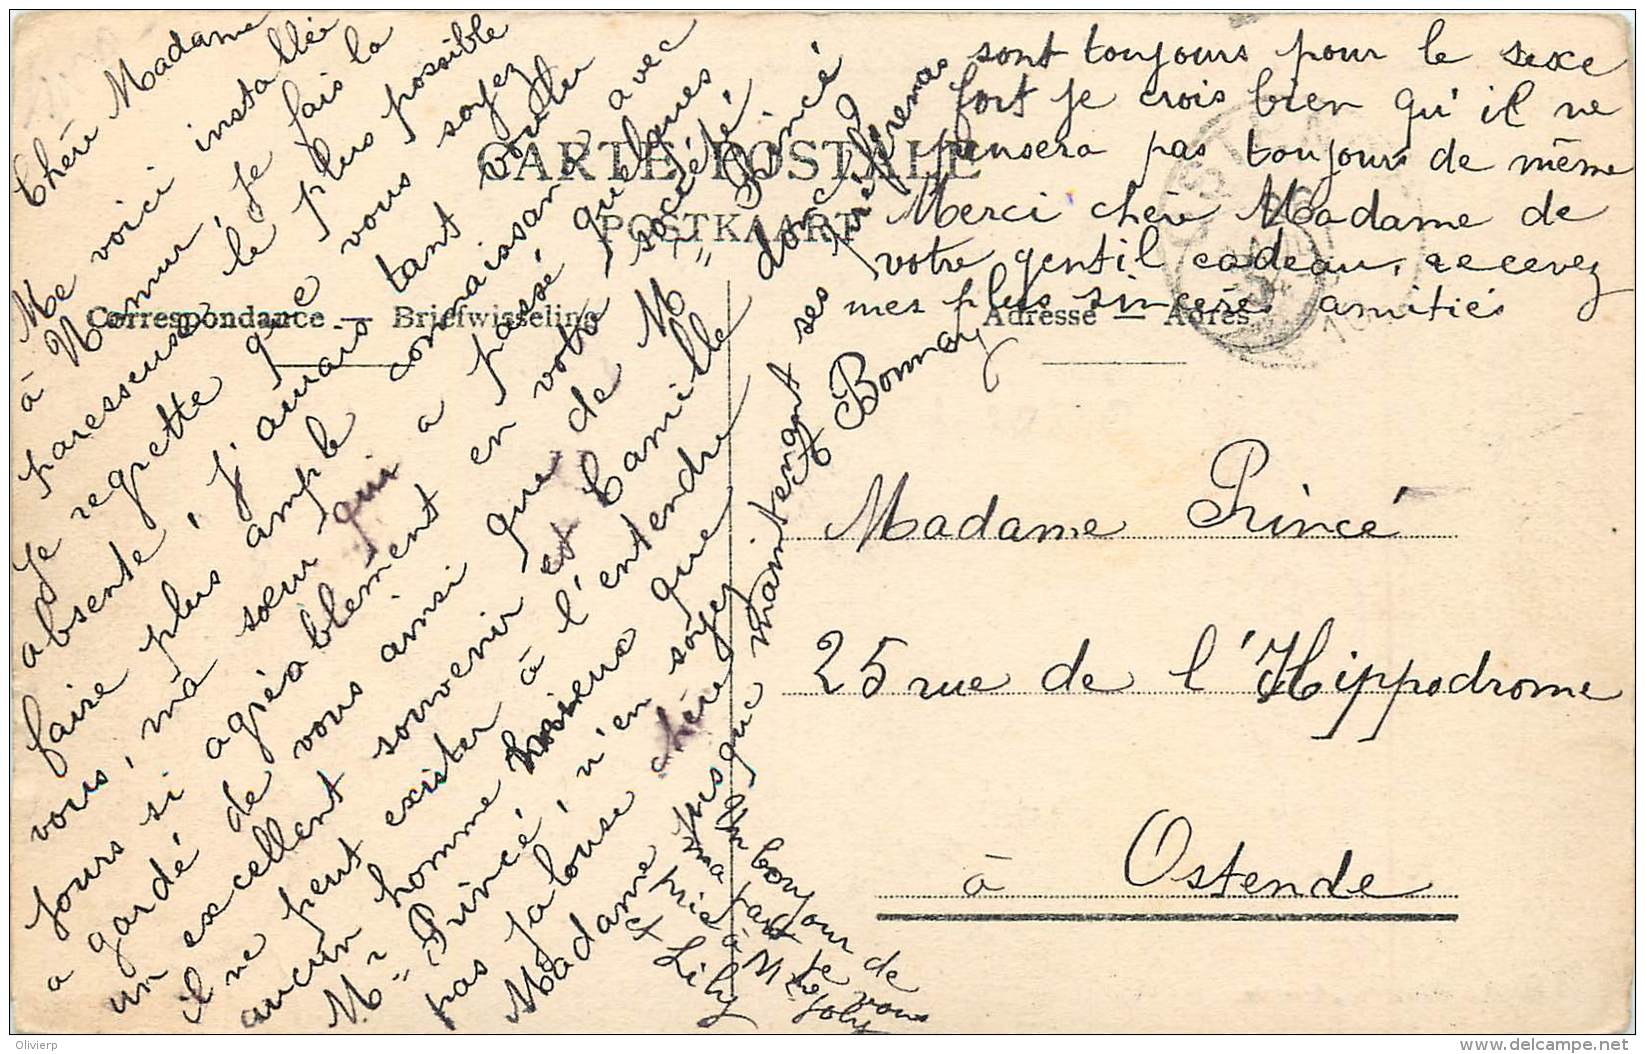 Chère Madame
Me voici installée
à Namur, je fais la
paresseuse le plus possible
Je regrette que vous soyez
absente, j'aurais tant voulu
faire plus ample connaissance avec
vous, ma sœur qui a passé quelques
jours si agréablement en votre société
a gardé de vous ainsi que de Mr Princé
un excellent souvenir et Camille donc?
il ne peut exister à l'entendre
aucun homme mieux que
Mr Princé, n'en soyez
pas jalouse chère
Madame jusque maintenant ses préférences sont toujours pour le sexe
fort je crois bien qu'il ne
pensera pas toujours de même
Merci chère Madame de
votre gentil cadeau, recevez
mes plus sincères amitiés
A Bonnay
Un bonjour de
ma part je vous
prie à Mme Joly
et Lily
CARTE POSTALE
POSTKAART
Correspondance — Briefwisseling
Adresse — Adres
Madame Princé
25 rue de l'Hippodrome
à Ostende
Olivierp
www.delcampe.net